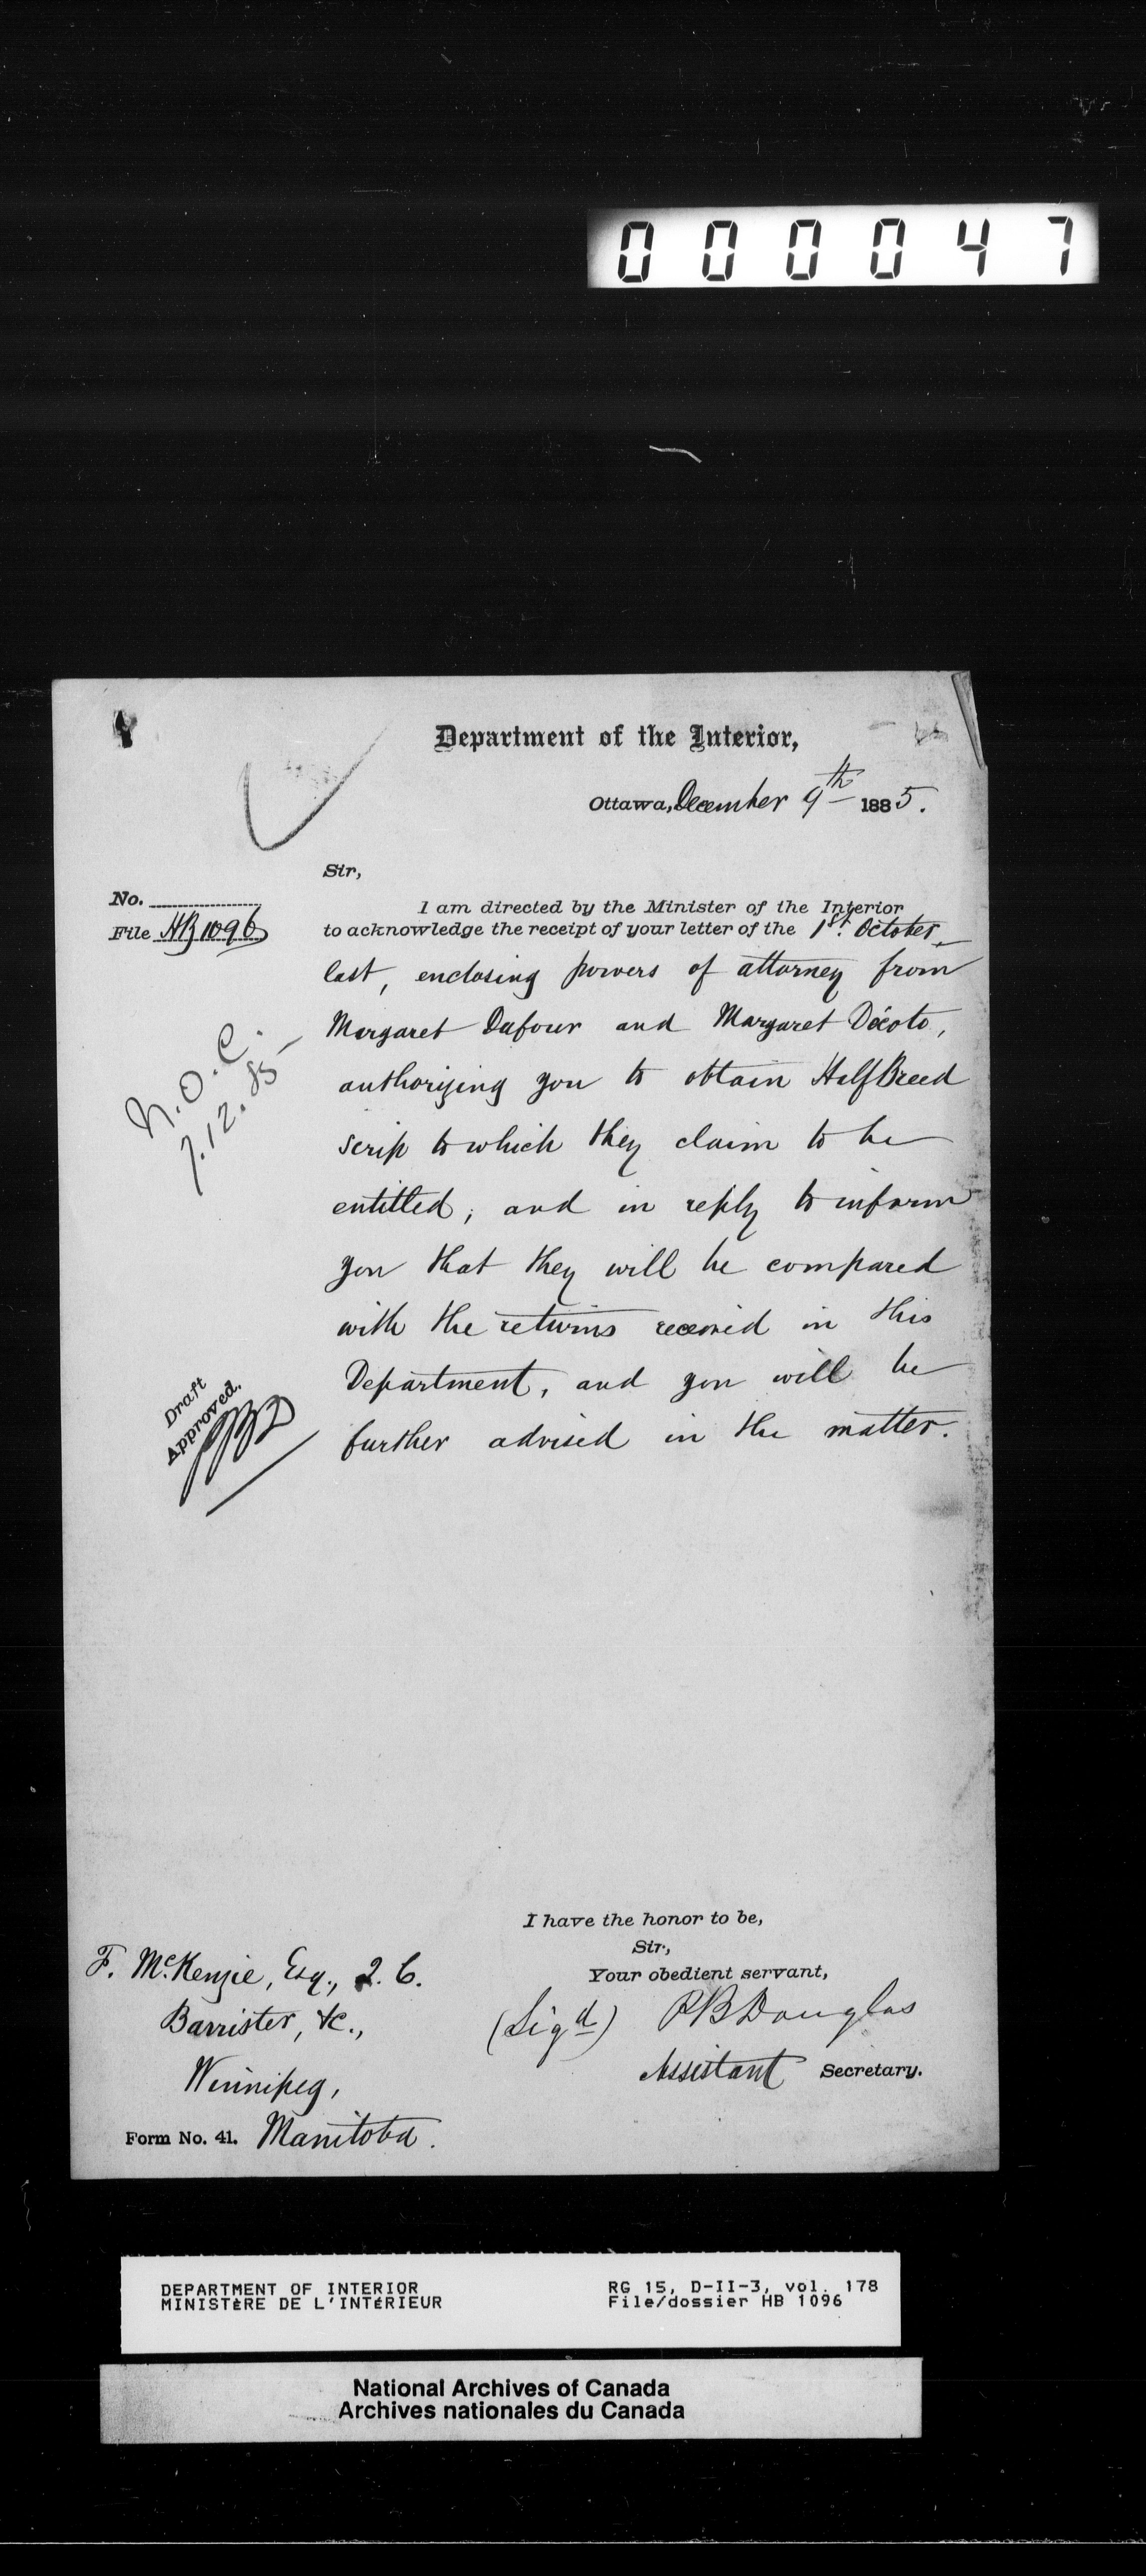 000047
Department of the Interior,
Ottawa, December 9th 1885.
Sir,
No.
File HB 1096
I am directed by the Minister of the Interior
to acknowledge the receipt of your letter of the 1st. October
last, enclosing powers of attorney from
Margaret Dufour and Margaret Décoto,
authorizing you to obtain Half Breed
scrip to which they claim to be
entitled; and in reply to inform
you that they will be compared
with the returns received in this
Department, and you will be
further advised in the matter.
N.O.C.
7.12.85
Draft
Approved.
I have the honor to be,
Sir,
Your obedient servant,
(Sigd) P B Douglas
Assistant Secretary.
F. McKenzie, Esq., Q. C.
Barrister, &c.,
Winnipeg,
Manitoba.
Form No. 41.
DEPARTMENT OF INTERIOR
MINISTÈRE DE L'INTÉRIEUR
RG 15, D-II-3, vol. 178
File/dossier HB 1096
National Archives of Canada
Archives nationales du Canada